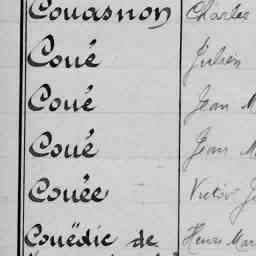 Couasnon Charles
Coué Julien
Coué Jean M
Coué Jean M
Couée Victor J
Couëdic de Henri Mar